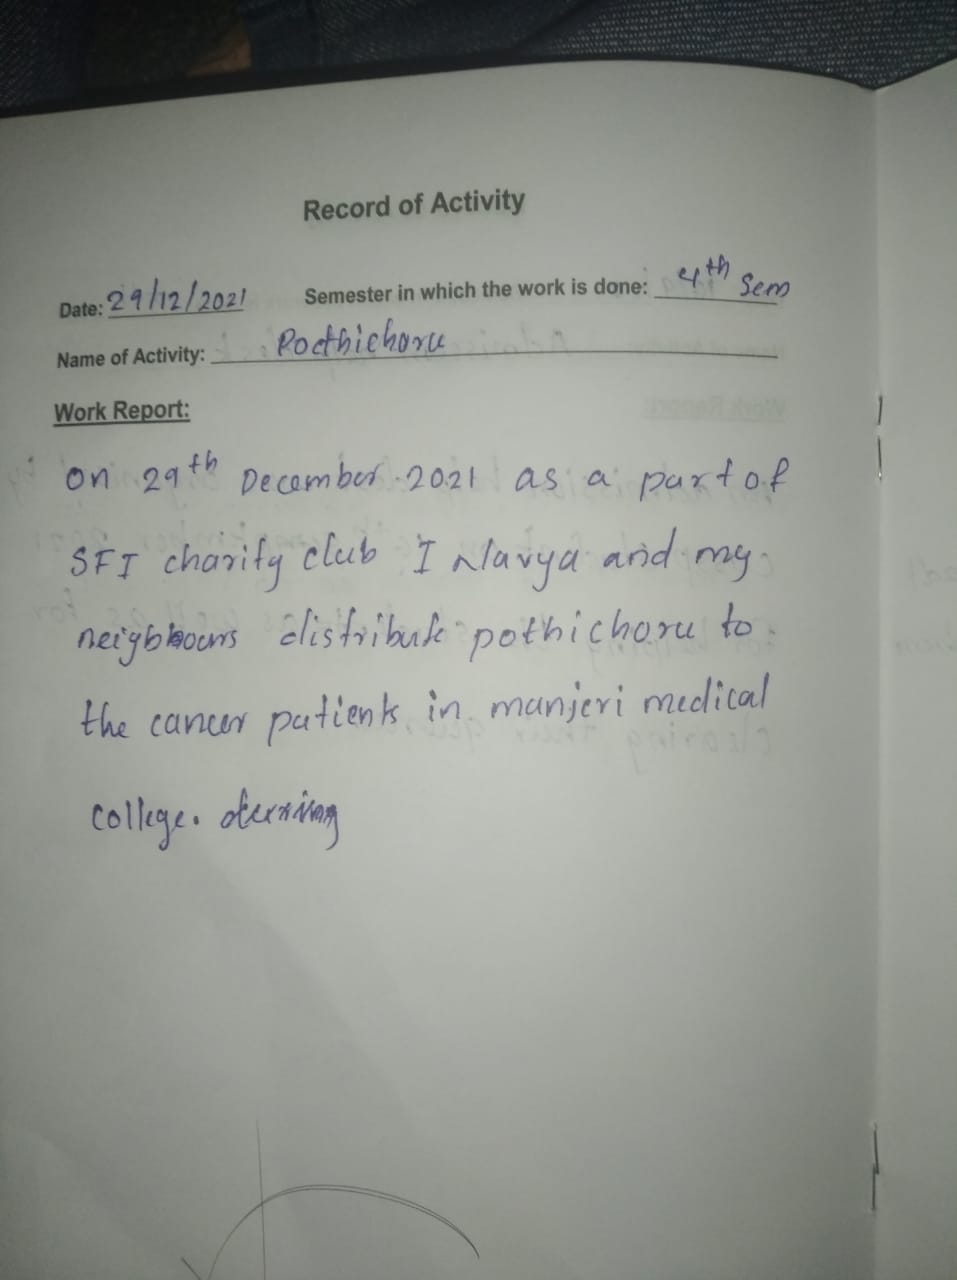 Record of Activity
Date: 29/12/2021 Semester in which the work is done: 4th Sem
Name of Activity: Pothichoru
Work Report:
On 29th December 2021 as a part of
SFI charity club I Navya and my
neighbours distribute pothichoru to
the cancer patients in manjeri medical
college.